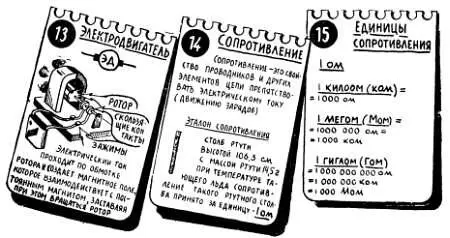 13
ЭЛЕКТРОДВИГАТЕЛЬ
ЭД
РОТОР
СКОЛЬЗЯ-
ЩИЕ КОН-
ТАКТЫ
ЗАЖИМЫ
ЭЛЕКТРИЧЕСКИЙ ТОК
ПРОХОДИТ ПО ОБМОТКЕ
РОТОРА И СОЗДАЕТ МАГНИТНОЕ ПОЛЕ,
КОТОРОЕ ВЗАИМОДЕЙСТВУЕТ С ПОС-
ТОЯННЫМ МАГНИТОМ, ЗАСТАВЛЯЯ
ПРИ ЭТОМ ВРАЩАТЬСЯ РОТОР
14
СОПРОТИВЛЕНИЕ
СОПРОТИВЛЕНИЕ - ЭТО СВОЙ-
СТВО ПРОВОДНИКОВ И ДРУГИХ
ЭЛЕМЕНТОВ ЦЕПИ ПРЕПЯТСТВО-
ВАТЬ ЭЛЕКТРИЧЕСКОМУ ТОКУ
(ДВИЖЕНИЮ ЗАРЯДОВ)
ЭТАЛОН СОПРОТИВЛЕНИЯ
СТОЛБ РТУТИ
ВЫСОТОЙ 106,3 СМ
С МАССОЙ РТУТИ 14,52 Г
ПРИ ТЕМПЕРАТУРЕ ТА-
ЮЩЕГО ЛЬДА СОПРОТИВ-
ЛЕНИЕ ТАКОГО РТУТНОГО СТОЛ-
БА ПРИНЯТО ЗА ЕДИНИЦУ - 1 ОМ
15
ЕДИНИЦЫ
СОПРОТИВЛЕНИЯ
1 ОМ
1 КИЛООМ (КОМ) =
= 1000 ОМ
1 МЕГОМ (МОМ) =
= 1000 000 ОМ =
= 1000 КОМ
1 ГИГАОМ (ГОМ)
= 1 000 000 000 ОМ
= 1 000 000 КОМ
= 1000 МОМ